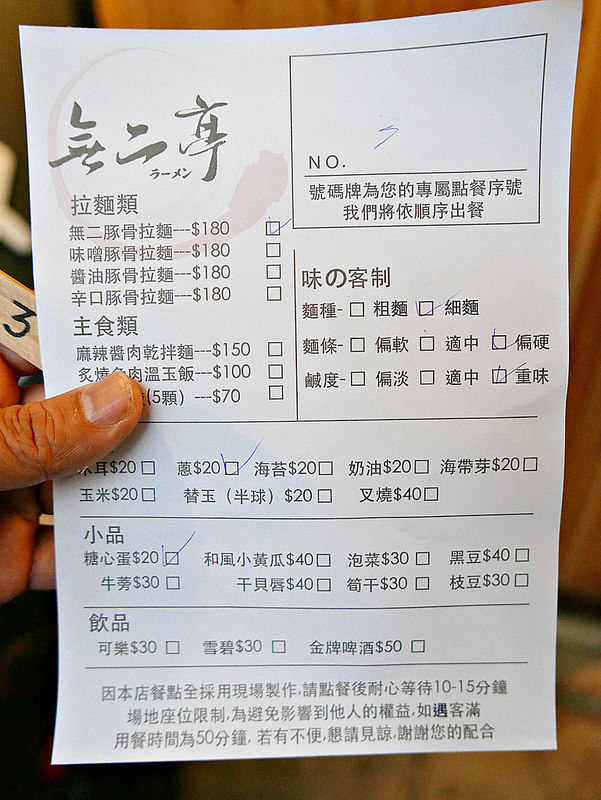 無二亭
ラーメン
3
NO.
號碼牌為您的專屬點餐序號
我們將依順序出餐
拉麵類
無二豚骨拉麵---$180 □
味噌豚骨拉麵---$180 □
醬油豚骨拉麵---$180 □
辛口豚骨拉麵---$180 □
主食類
麻辣醬肉乾拌麵---$150 □
炙燒 肉溫玉飯---$100 □
(5顆) ---$70 □
味の客制
麵種- □ 粗麵 □ 細麵
麵條- □ 偏軟 □ 適中 □ 偏硬
鹹度- □ 偏淡 □ 適中 □ 重味
3
木耳$20 □ 蔥$20 □ 海苔$20 □ 奶油$20 □ 海帶芽$20 □
玉米$20 □ 替玉（半球）$20 □ 叉燒$40 □
小品
糖心蛋$20 □ 和風小黃瓜$40 □ 泡菜$30 □ 黑豆$40 □
牛蒡$30 □ 干貝唇$40 □ 筍干$30 □ 枝豆$30 □
飲品
可樂$30 □ 雪碧$30 □ 金牌啤酒$50 □
因本店餐點全採用現場製作,請點餐後耐心等待10-15分鐘
場地座位限制,為避免影響到他人的權益,如遇客滿
用餐時間為50分鐘, 若有不便,懇請見諒,謝謝您的配合